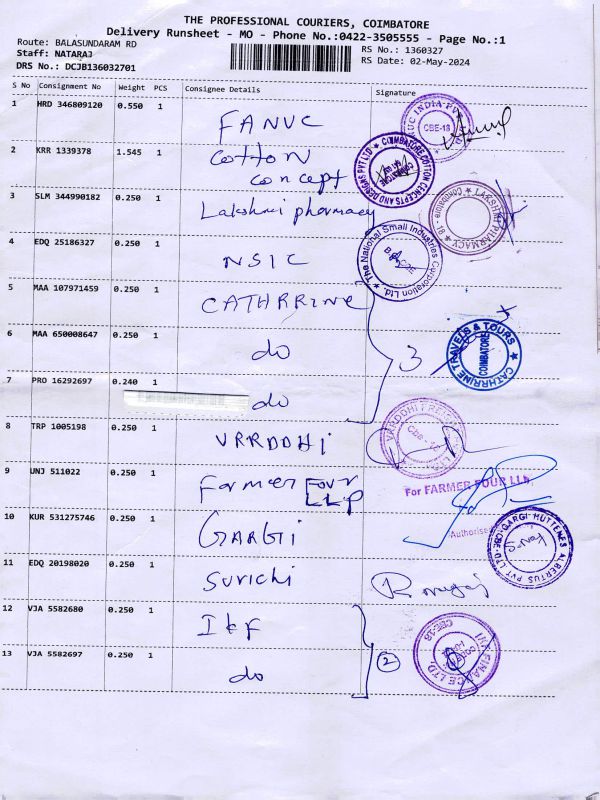 THE PROFESSIONAL COURIERS, COIMBATORE
Delivery Runsheet - MO - Phone No.:0422-3505555 - Page No.:1
Route: BALASUNDARAM RD
RS No.: 1360327
Staff: NATARAJ
RS Date: 02-May-2024
DRS No.: DCJB136032701
S No Consignment No Weight PCS Consignee Details Signature
1 HRD 346809120 0.550 1 FANUC
CBE-18
2 KRR 1339378 1.545 1 Cotton
concept
COIMBATORE COTTON CONCEPTS AND DESIGNS PVT LTD
3 SLM 344990182 0.250 1 Lakshmi pharmacy
LAKSHMI PHARMACY Coimbatore - 18
4 EDQ 25186327 0.250 1 NSIC
The National Small Industries Corporation Ltd.
5 MAA 107971459 0.250 1 CATHRRINE
6 MAA 650008647 0.250 1 do
3
CATHRRINE TRAVELS & TOURS
COIMBATORE
7 PRO 16292697 0.240 1 do
8 TRP 1005198 0.250 1 VRRDDHI
9 UNJ 511022 0.250 1 Farmer Four
LLP
For FARMER FOUR LLP.
Authorised
10 KUR 531275746 0.250 1 GARGI
GARGI HUTTENES ALBERTUS PVT LTD
11 EDQ 20198020 0.250 1 Surichi
12 VJA 5582680 0.250 1 IKF
2
IKF FINANCE LTD.
CBE-18
13 VJA 5582697 0.250 1 do